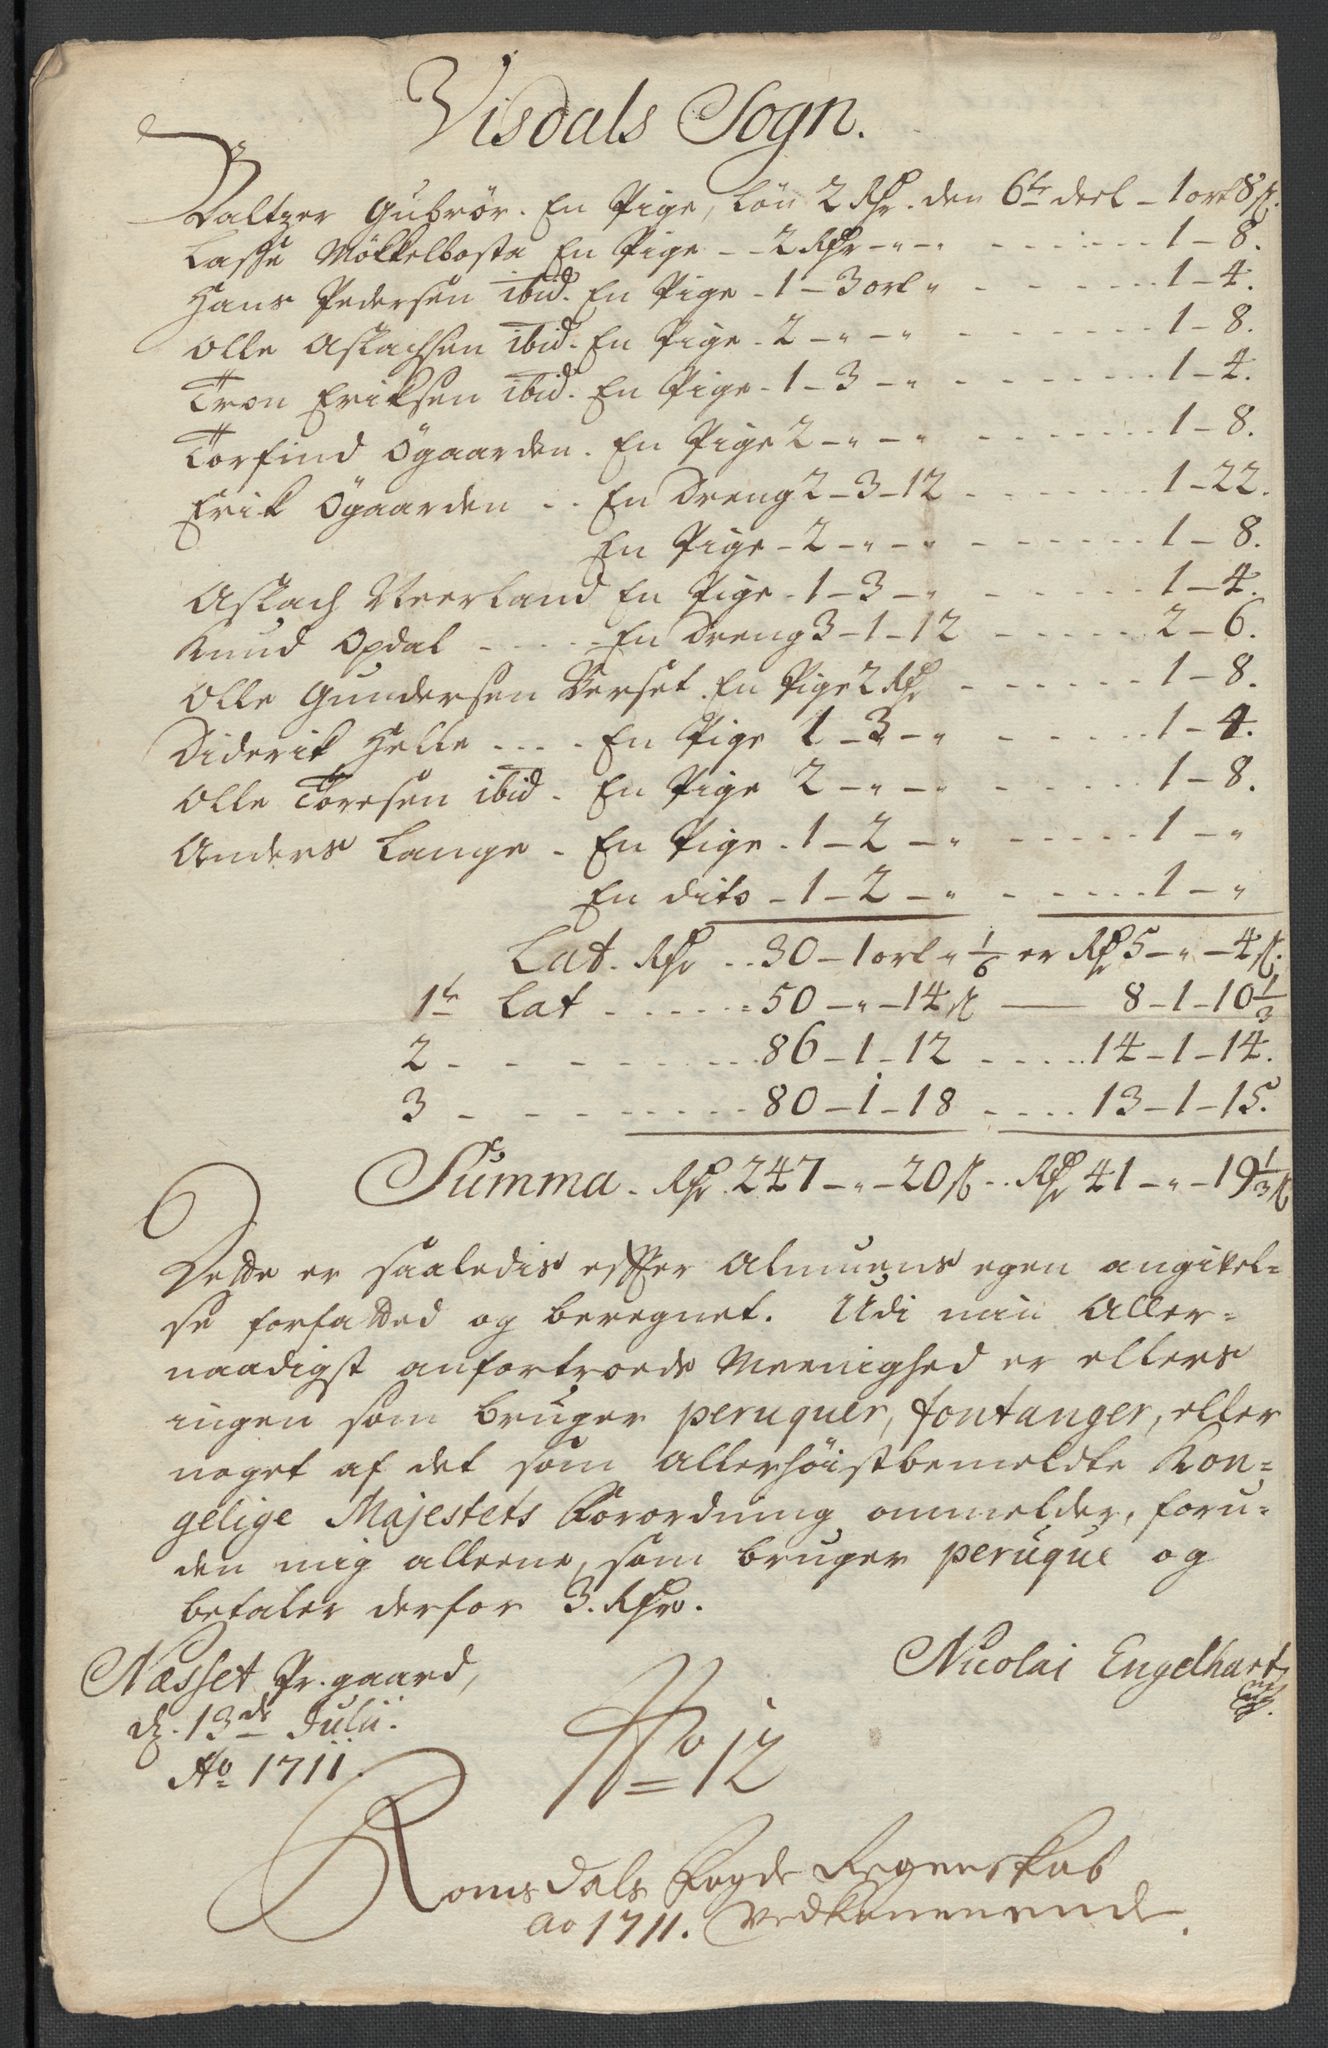 Visdals Sogn.
Baltzer Gubrør. En Pige, Løn 2 Rdr. den 6te deel - 1 ort 8 s.
Lasse Møkkelbosta En Pige - - 2 Rdr - " - " - - - - - - 1 - 8.
Hans Pedersen ibid. En Pige - 1 - 3 ort " - - - - - - 1 - 4.
Olle Aslachsen ibid. En Pige - 2 - " - " - - - - - - 1 - 8.
Tron Eriksen ibid. En Pige - 1 - 3 - " - - - - - - 1 - 4.
Torfind Øgaarden. En Pige 2 - " - " - - - - - - 1 - 8.
Erik Øgaarden - - En Dreng 2 - 3 - 12 - - - - - - 1 - 22.
En Pige - 2 - " - " - - - - - - 1 - 8.
Aslach Neerland En Pige - 1 - 3 - " - - - - - - 1 - 4.
Knud Opdal - - - - En Dreng 3 - 1 - 12 - - - - - 2 - 6.
Olle Gundersen Verset. En Pige 2 Rdr - - - - - - 1 - 8.
Diderik Helle - - - - En Pige 1 - 3 - " - - - - - - 1 - 4.
Olle Toresen ibid - En Pige 2 - " - " - - - - - - 1 - 8.
Anders Lange - En Pige - 1 - 2 - " - - - - - - 1 - "
En dito - 1 - 2 - " - - - - - - 1 - "
Lat. Rdr - - 30 - 1 ort " 1/6 er Rdr 5 - " - 4 s.
1te Lat - - - - - - 50 - " - 14 s — 8 - 1 - 10 1/3
2 - - - - - - - - 86 - 1 - 12 - - - - 14 - 1 - 14.
3 - - - - - - - - 80 - 1 - 18 - - - - 13 - 1 - 15.
Summa - Rdr 247 - " - 20 s - - Rdr 41 - " - 19 1/3 s
Dette er saaledis efter Almuens egen angivel=
se forfatted og beregnet. Udi min Aller=
naadigst anfortroede Meenighed er ellers
ingen som bruger peruquer, fontanger, eller
noget af det som allerhøistbemeldte Kon=
gelige Majestets Forordning ommelder, foru=
den mig alleene, som bruger peruque og
betaler derfor 3. Rdr.
Nicolai Engelhart
Næsset Pr. gaard,
d. 13de Julii.
Ao 1711.
No 12
Romsdals Fogde Regenskab
ao 1711. Vedkommende.